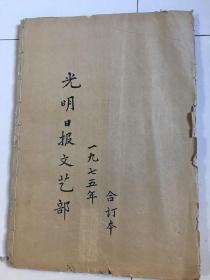 光明日报文艺部
一九七五年
合订本